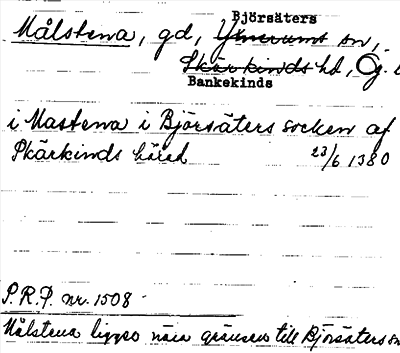 Björsäters
Målstena, gd, Ynerums sn,
Skärkinds hd, Ög.
Bankekinds
i Mastena i Björsäters socken af
Skärkinds härad 23/6 1380
P.R.P. nr. 1508
Målstena ligger nära gränsen till Björsäters sn